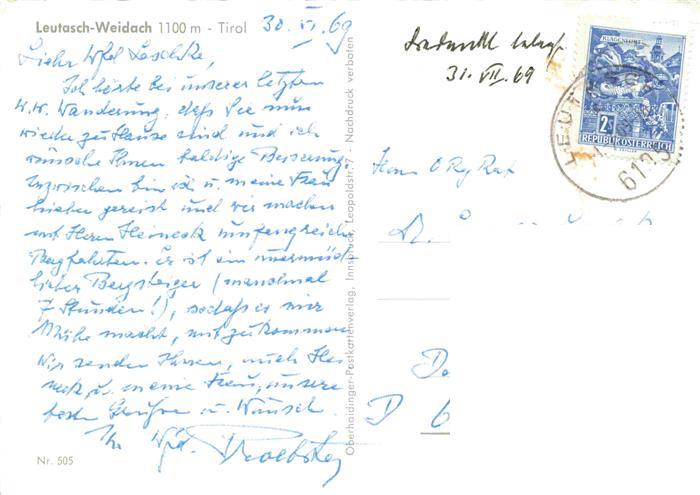 Leutasch-Weidach 1100 m - Tirol
30. VI. 69
Lieber Wfd. Leschke,
Ich hörte bei unserer letzten
W.W. Wanderung, daß Sie nun
wieder zu Hause sind und ich
wünsche Ihnen baldige Besserung.
Inzwischen bin ich u. meine Frau
hierher gereist und wir machen
mit Herrn Heineck umfangreiche
Bergfahrten. Er ist ein unermüd-
licher Bergsteiger (manchmal
7 Stunden!), sodaß es mir
Mühe macht, mitzukommen.
Wir senden Ihnen, auch Hei-
neck, u. meine Frau, unsere
besten Grüße u. Wünsche.
Ihr Wfd.
Nr. 505
Oberhaidinger-Postkartenverlag, Innsbruck, Leopoldstr. 7 - Nachdruck verboten
31. VII. 69
KLAGENFURT
2S
REPUBLIK ÖSTERREICH
LEUTA
Herrn O Rg Rat
Dr.
D 6